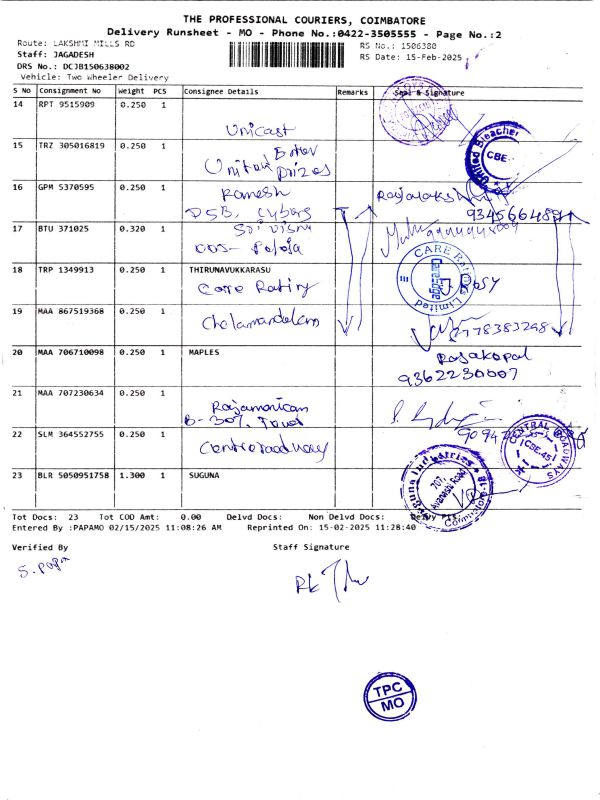 THE PROFESSIONAL COURIERS, COIMBATORE
Delivery Runsheet - MO - Phone No.:0422-3505555 - Page No.:2
Route: LAKSHMI MILLS RD
RS No.: 1506380
Staff: JAGADESH
RS Date: 15-Feb-2025
DRS No.: DCJB150638002
Vehicle: Two Wheeler Delivery
S No Consignment No Weight PCS Consignee Details Remarks Seal & Signature
14 RPT 9515909 0.250 1
Unicast
15 TRZ 305016819 0.250 1
United Enter
prizes
United Bleacher
CBE
16 GPM 5370595 0.250 1 Ramesh
DSB, Cyberg
9345664489
17 BTU 371025 0.320 1 Sri Visnu
18 TRP 1349913 0.250 1 THIRUNAVUKKARASU
Care Rating
CARE Ratings Limited
Rosy
19 MAA 867519368 0.250 1
Cholamandalam
20 MAA 706710098 0.250 1 MAPLES
Rajakopal
9362230007
21 MAA 707230634 0.250 1
Rajamanicam
22 SLM 364552755 0.250 1
Centroroadway
CENTRAL ROADWAYS
CBE.45
23 BLR 5050951758 1.300 1 SUGUNA
Suguna Industries
707, Avanashi Road
Tot Docs: 23 Tot COD Amt: 0.00 Delvd Docs: Non Delvd Docs:
Entered By :PAPAMO 02/15/2025 11:08:26 AM Reprinted On: 15-02-2025 11:28:40
Verified By Staff Signature
S. Papa
TPC
MO